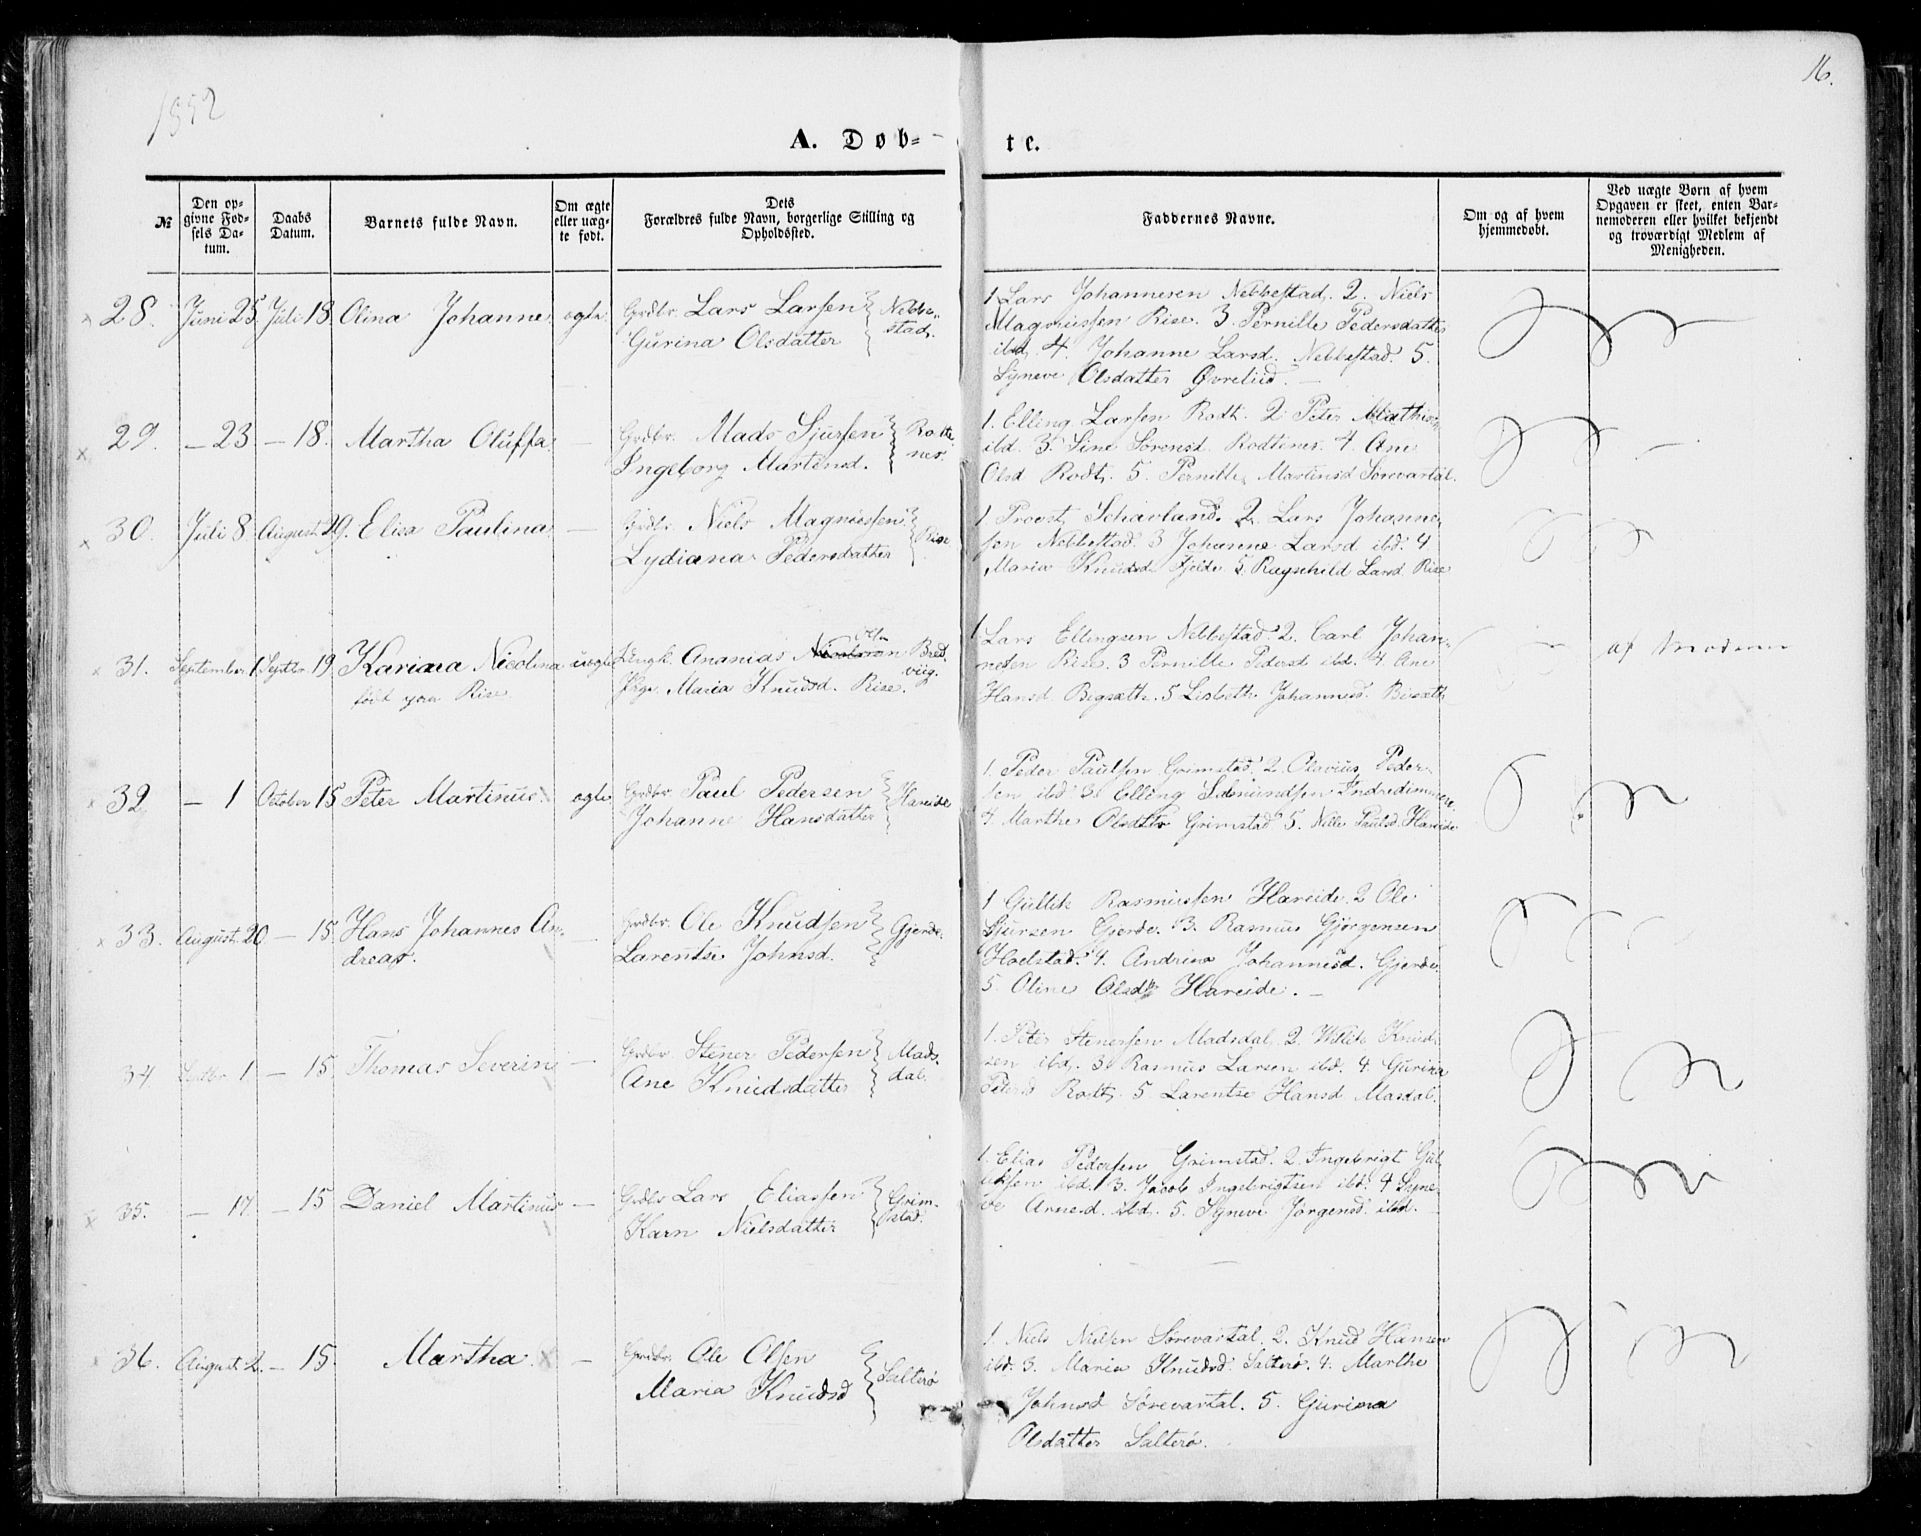 1852
16.
A. Døb-
te.
№
Den op-
givne Fød-
sels Da-
tum.
Daabs
Datum.
Barnets fulde Navn.
Om ægte
eller uæg-
te født.
Dets
Forældres fulde Navn, borgerlige Stilling og
Opholdssted.
Faddernes Navne.
Om og af hvem
hjemmedøbt.
Ved uægte Børn af hvem
Opgaven er skeet, enten Bar-
nemoderen eller hvilket bekjendt
og troværdigt Medlem af
Menigheden.
28. Juni 25. Juli 18. Olina Johanne. ægte. Grdbr. Lars Larsen Nebbe-
Gurina Olsdatter stad.
1 Lars Johannesen Nebbestad. 2. Niels
Magnussen Rise. 3. Pernille Pedersdatter
ibd. 4. Johanne Larsd. Nebbestad. 5.
Syneve Olsdatter Øvrelid.
29. — 23 — 18. Martha Oluffa. — Grdbr. Mads Sjursen
Ingeborg Martinsd.
1. Elling Larsen Rodt. 2 Peter
ibd. 3. Sine Sorensd. 4. Ane
Olsd Rodt. 5. Pernille Martinsd Sorevartal.
30. Juli 8. August 29. Elisa Paulina — Grdbr. Niels Magnussen
Lydiana Pedersdatter Rise
1 Provst 2. Lars Johanne-
sen Nebbestad. 3 Johanne Larsd ibd. 4
Maria Knudsd Fjelde 5 Ragnhild Larsd Rise
31. September 1. Septbr. 19. Karina Nicolina uægte Ungk. Ananias
født paa Rise Pige Maria Knudsd. Rise.
1 Lars Ellingsen Nebbestad. 2. Carl Johan-
nesen Rise. 3 Pernille Pedersd ibd. 4 Ane
Hansd 5 Lisbeth Johannesd.
af Moderen
32. — 1 October 15 Peter Martinus. ægte Grdbr Paul Pedersen Hareide
Johanne Hansdatter
1. Peder Paulsen Grimstad. 2. Olavius Peder-
sen ibd 3. Elling
4. Marthe Olsdtr Grimstad 5. Nille Paulsd. Hareide
33. August 20 — 15. Hans Johannes An- — Grdbr. Ole Knudsen Gjerde.
dreas. Larentse Johnsd.
1 Gullik Rasmussen Hareide. 2 Ole
Sjursen Gjerde. 3. Rasmus Gjørgensen
4. Andrina Johannesd. Gjerde.
5. Oline Olsdtr Hareide. —
34. Septbr 1 — 15. Thomas Severin — Grdbr. Stener Pedersen Mads-
Ane Knudsdatter dal.
1. Peter Stenersen Madsdal. 2. Knud-
sen ibd. 3. Rasmus Larsen ibd. 4. Gurina
Petersd Rodt. 5. Larentse Hansd Masdal.
35. — 17. — 15 Daniel Martinus — Grdbr Lars Eliassen Grim-
Karn Nielsdatter stad.
1. Elias Pedersen Grimstad. 2. Ingebrigt Gul-
liksen ibd. 3. Jacob Ingebrigtsen ibd. 4 Syne-
ve Arnesd. ibd. 5. Synevé Jørgensd. ibd.
36. August 2. — 15. Martha — Grdbr. Ole Olsen Salterø
Maria Knudsd
1. Niels Nielsen Sørevartal. 2. Knud Hansen
ibd. 3. Maria Knudsd. Salterø. 4. Marthe
Johnsd Sørevartal. 5. Gurina
Olsdatter Salterø.